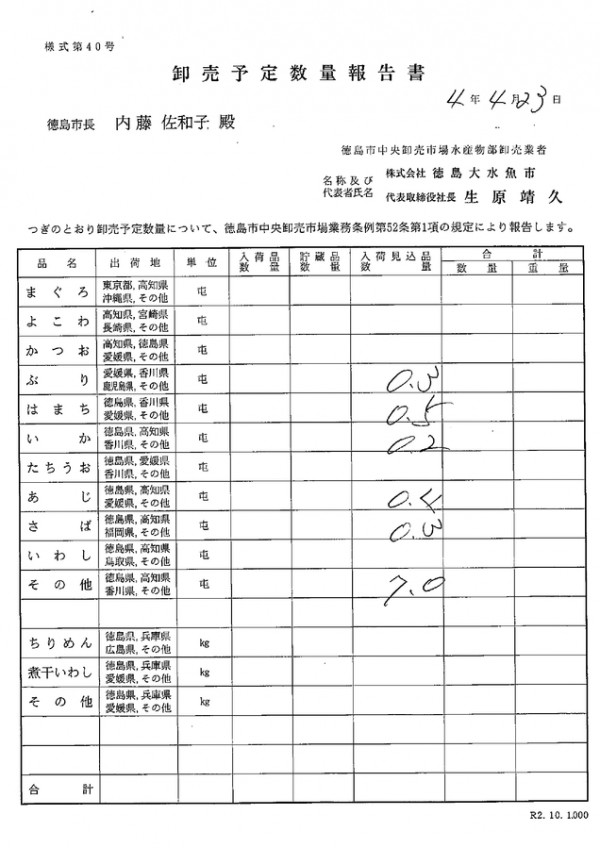 様式第40号
卸売予定数量報告書
4年4月23日
徳島市長 内藤 佐和子 殿
徳島市中央卸売市場水産物部卸売業者
名称及び 株式会社 徳島大水魚市
代表者氏名 代表取締役社長 生原靖久
つぎのとおり卸売予定数量について、徳島市中央卸売市場業務条例第52条第1項の規定により報告します。
品名 出荷地 単位 入荷品数量 貯蔵品数量 入荷見込品数量 合計
数量 重量
まぐろ 東京都,高知県 屯
沖縄県,その他
よこわ 高知県,宮崎県 屯
長崎県,その他
かつお 高知県,徳島県 屯
愛媛県,その他
ぶり 愛媛県,香川県 屯 0.3
鹿児島県,その他
はまち 徳島県,香川県 屯 0.5
愛媛県,その他
いか 徳島県,高知県 屯 0.2
香川県,その他
たちうお 徳島県,愛媛県 屯
香川県,その他
あじ 徳島県,高知県 屯 0.4
愛媛県,その他
さば 徳島県,高知県 屯 0.3
福岡県,その他
いわし 徳島県,高知県 屯
鳥取県,その他
その他 徳島県,高知県 屯 7.0
香川県,その他
ちりめん 徳島県,兵庫県 kg
広島県,その他
煮干いわし 徳島県,兵庫県 kg
愛媛県,その他
その他 徳島県,兵庫県 kg
愛媛県,その他
合計
R2.10.1,000